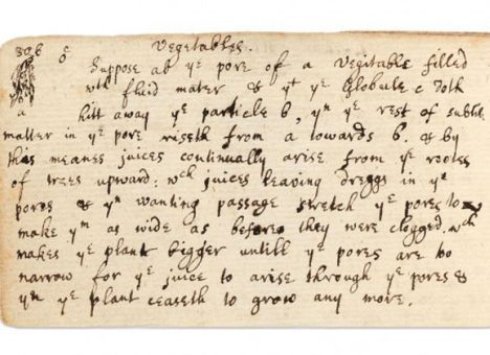 306 c Vegetables.
b Suppose ab yᵉ pore of a Vegitable filled
wᵗʰ fluid mater & yᵗ yᵉ Globule c doth
a hitt away yᵉ particle b, yⁿ yᵉ rest of subtle
matter in yᵉ pore riseth from a towards b. & by
this meanes juices continually arise from yᵉ rootes
of trees upward: wᶜʰ juices leaving dreggs in yᵉ
pores & yⁿ wanting passage stretch yᵉ pores to
make yᵐ as wide as before they were clogged. wᶜʰ
makes yᵉ plant bigger untill yᵉ pores are too
narrow for yᵉ juice to arise through yᵉ pores &
yⁿ yᵉ plant ceaseth to grow any more.